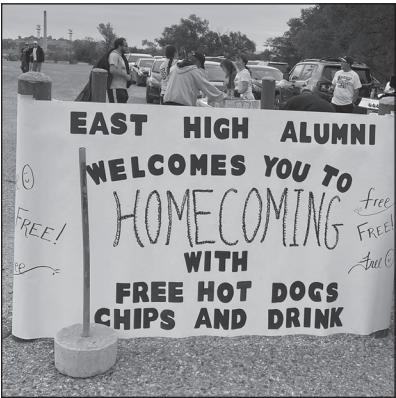 EAST HIGH ALUMNI
WELCOMES YOU TO
HOMECOMING
WITH
FREE HOT DOGS
CHIPS AND DRINK
FREE!
free
FREE!
free